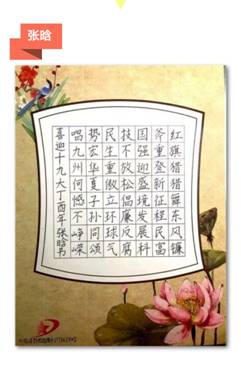 张晗
红旗猎猎舞东风镰
斧重登新征程民富
国强迎盛境发展科
技不放松倡廉反腐
民生重傲立环球气
势宏华夏子孙同颂
唱九州何憾不峥嵘
喜迎十九大丁酉年张晗书